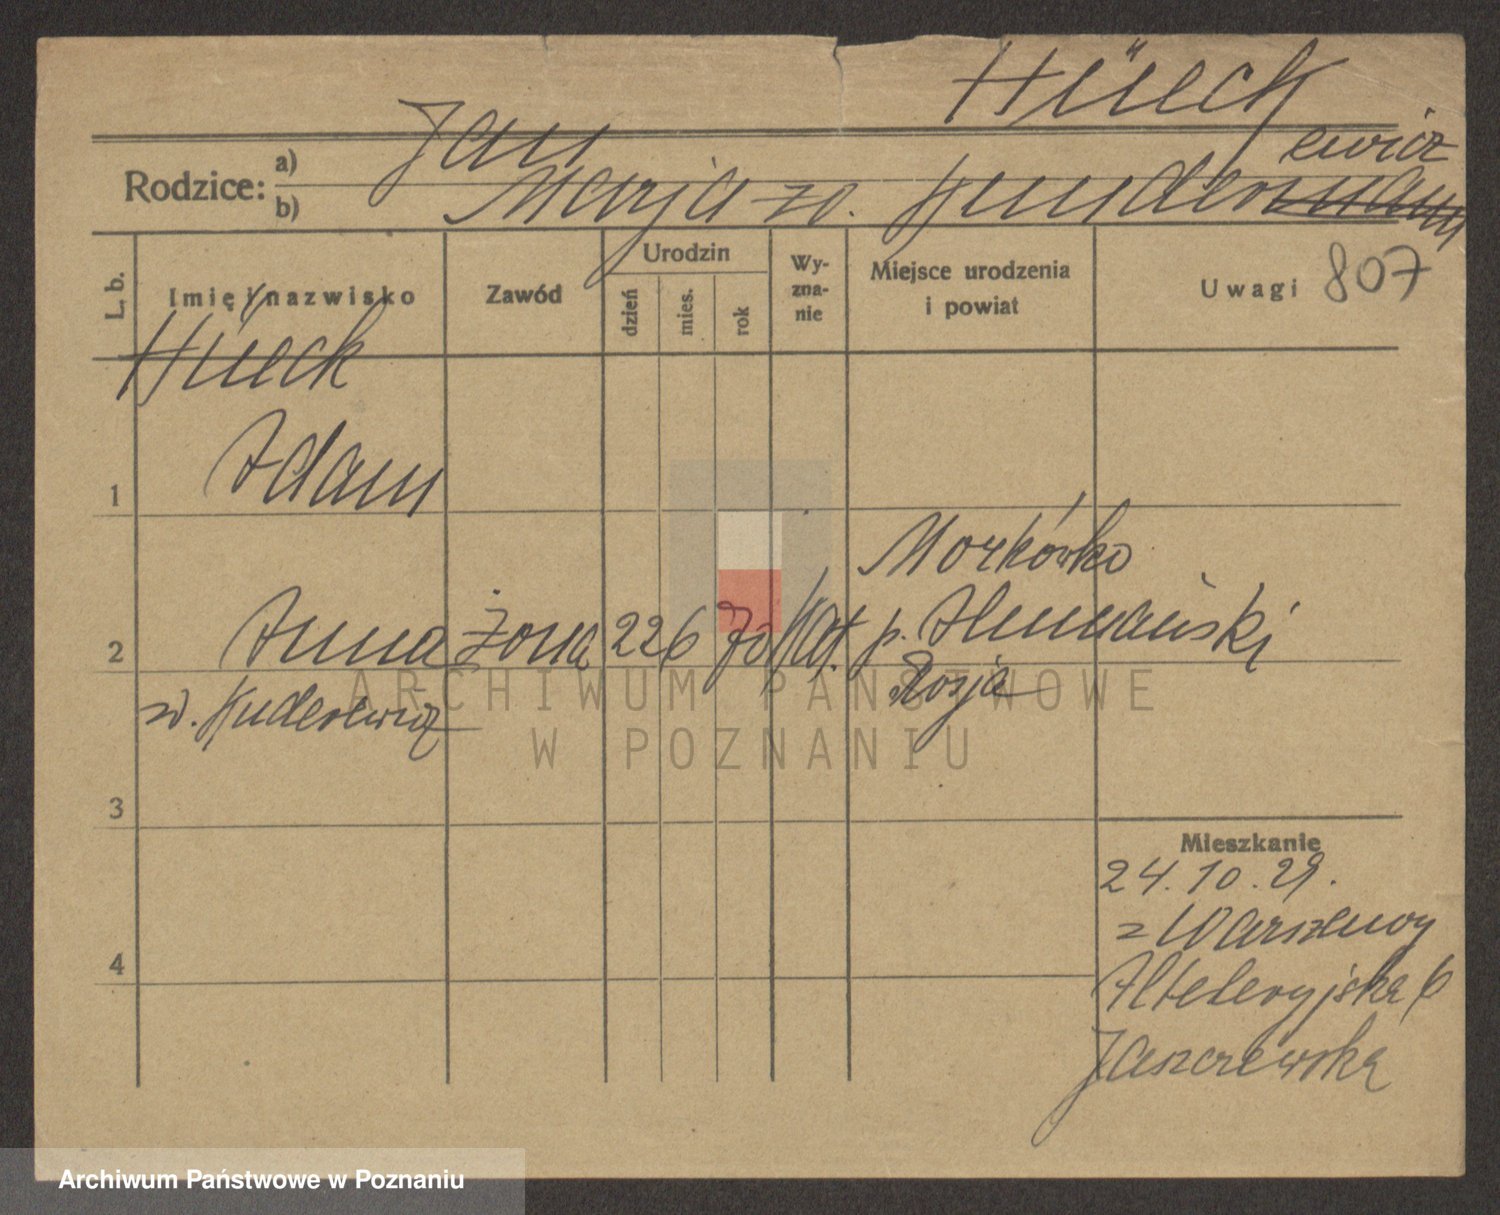 Hüeck
Rodzice:
a) Jan
ewicz
b) Marja zd. Kundermann
L. b.
Imię i nazwisko
Zawód
Urodzin
dzień
mies.
rok
Wy-
zna-
nie
Miejsce urodzenia
i powiat
Uwagi 807
Hüeck
1 Adam
Morkówko
2 Anna Żona 22 6 70 kat. p.
Rosja
3
4
Mieszkanie
24.10.29.
z Warszawy
6
Jaszczewska
ARCHIWUM PAŃSTWOWE
W POZNANIU
Archiwum Państwowe w Poznaniu